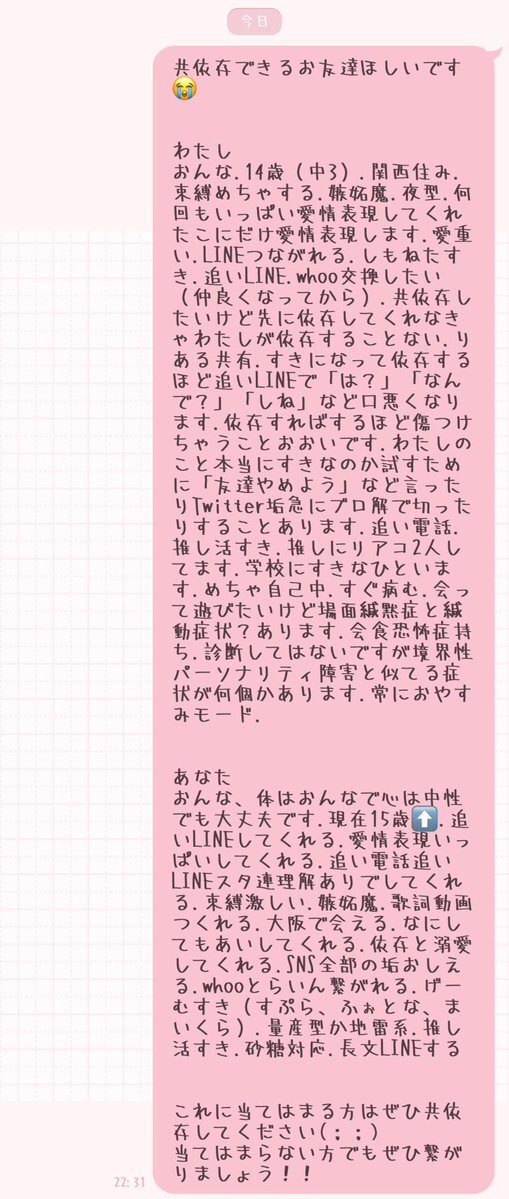 今日
共依存できるお友達ほしいです
😭
わたし
おんな.14歳（中3）.関西住み.
束縛めちゃする.嫉妬魔.夜型.何
回もいっぱい愛情表現してくれ
たこにだけ愛情表現します.愛重
い.LINEつながれる.しもねたす
き.追いLINE.whoo交換したい
（仲良くなってから）.共依存し
たいけど先に依存してくれなき
ゃわたしが依存することない.り
ある共有.すきになって依存する
ほど追いLINEで「は？」「なん
で？」「しね」など口悪くなり
ます.依存すればするほど傷つけ
ちゃうことおおいです.わたしの
こと本当にすきなのか試すため
に「友達やめよう」など言った
りTwitter垢急にブロ解で切った
りすることあります.追い電話.
推し活すき.推しにリアコ2人し
てます.学校にすきなひといま
す.めちゃ自己中.すぐ病む.会っ
て遊びたいけど場面緘黙症と緘
動症状？あります.会食恐怖症持
ち.診断してはないですが境界性
パーソナリティ障害と似てる症
状が何個かあります.常におやす
みモード.
あなた
おんな、体はおんなで心は中性
でも大丈夫です.現在15歳⬆️.追
いLINEしてくれる.愛情表現いっ
ぱいしてくれる.追い電話追い
LINEスタ連理解ありでしてくれ
る.束縛激しい.嫉妬魔.歌詞動画
つくれる.大阪で会える.なにし
てもあいしてくれる.依存と溺愛
してくれる.SNS全部の垢おしえ
る.whooとらいん繋がれる.げー
むすき（すぷら、ふぉとな、ま
いくら）.量産型か地雷系.推し
活すき.砂糖対応.長文LINEする
これに当てはまる方はぜひ共依
存してください(；；)
当てはまらない方でもぜひ繋が
りましょう！！
22:31